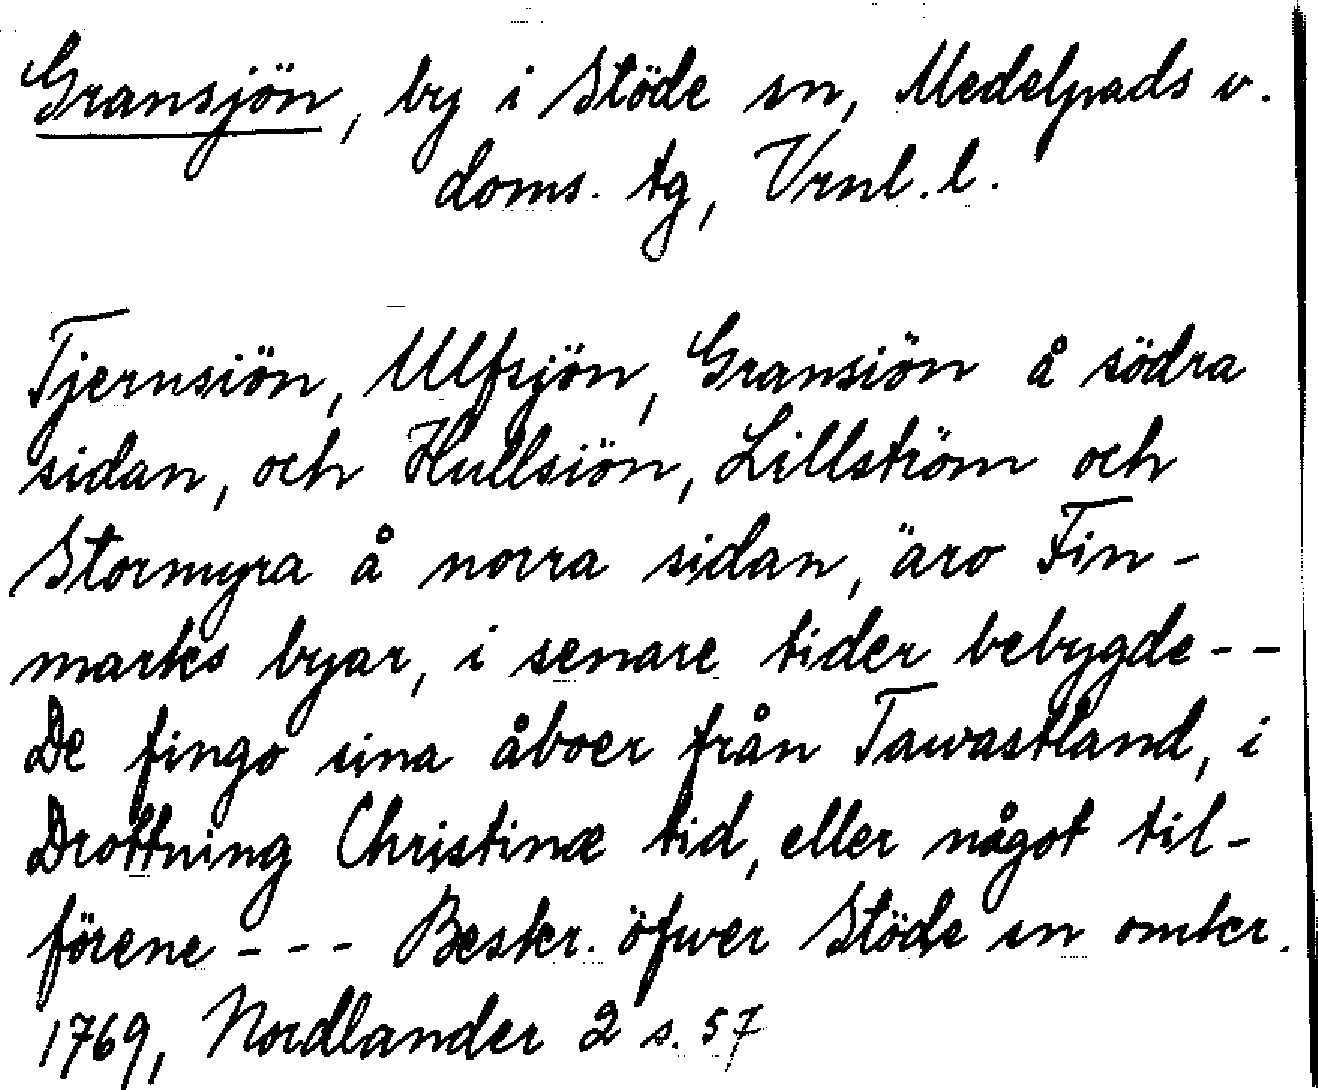 Gransjön, by i Stöde sn, Medelpads v.
doms. tg, Vrnl. l.
Tjernsiön, Ulfsjön, Gransiön å södra
sidan, och Hullsiön, Lillström och
Stormyra å norra sidan, äro Fin-
marks byar, i senare tider bebygde --
De fingo sina åboer från Tawastland, i
Drottning Christinæ tid, eller något til-
förene --- Beskr. öfwer Stöde sn omkr.
1769, Nordlander 2 s. 57